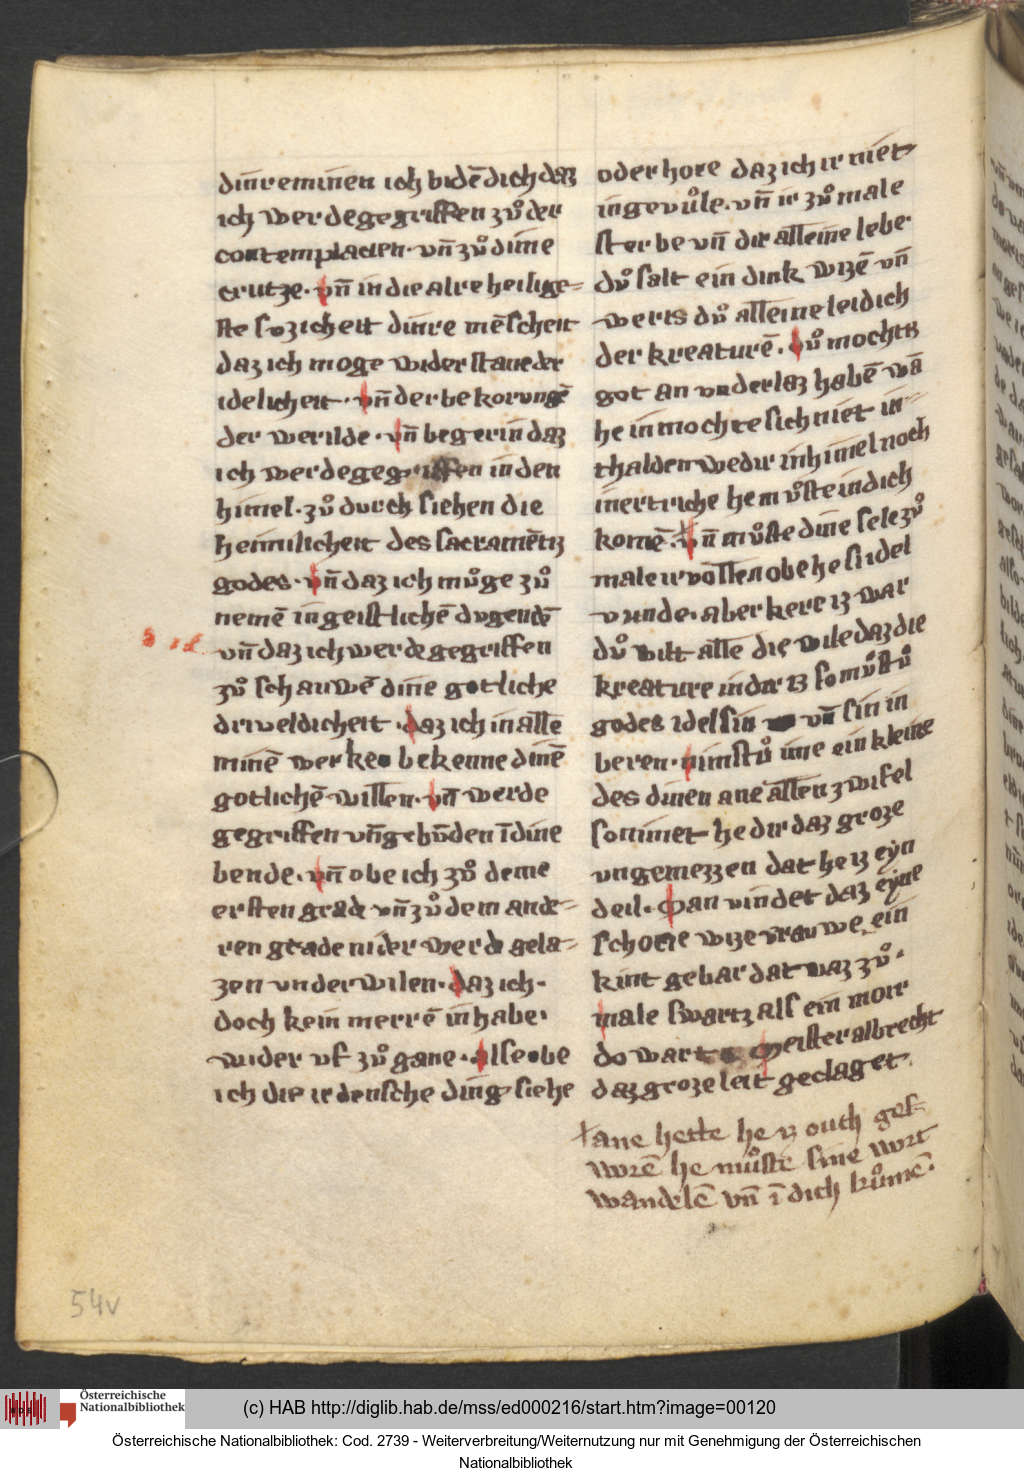 dinre minen ich bidē dich daz
ich werde gegriffen zuͦ der
contemplacien · vn̄ zuͦ dime
crutze · vn̄ in die alre heilige=
ste sozicheit dinre mēscheit
daz ich moge widerstane der
idelicheit · vn̄ der bekorungē
der werilde · vn̄ begerin daz
ich werde gegriffen in den
himel · zuͦ durch siehen die
heimlicheit des sacramētz
godes · vn̄ daz ich muͦge zuͦ
nemē in geistlichē dugendē
vn̄ daz ich werde gegriffen
zuͦ schauwē dine gotliche
driveldicheit · daz ich in alle
minē werken bekenne dinē
gotlichē willen · vn̄ werde
gegriffen vn̄ gebūden ī dine
bende · vn̄ obe ich zuͦ deme
ersten grade vn̄ zuͦ dem ande=
ren grade nider werde gela=
zen vnderwilen · daz ich ·
doch kein merrē in habe ·
wider vf zuͦ gane · alse obe
ich die irdensche ding siehe
oder hore daz ich ir niet
in gevuͦle · vn̄ ir zuͦ male
sterbe vn̄ dir alleine lebe ·
duͦ salt ein dink wizē vn̄
weris duͦ alleine leidich
der kreaturē · duͦ mochtis
got an vnderlaz habē wā
he in mochte sich niet in=
thalden wedir in himel noch
in ertriche he muͦste in dich
komē · vn̄ muͦste dine sele zuͦ
male irvollen obe he si idel
vunde · aber kere iz war
duͦ wilt alle die wile daz die
kreature in dir iz so muͦstuͦ
godes idel sin vn̄ sin in
beren · nimstuͦ ime ein kleine
des dinen ane allen zwifel
so nimet he dir daz groze
vngemezzen dat he iz eyn
deil · Man vindet daz eyne
schoene wize vrauwe ein
kint gebar dat waz zuͦ ·
male swartz als ein moir
do wart meister albrecht
daz groze leit geclaget ·
ane hette he iz ouch ges=
worē he muͦste sine wort
wandelē vn̄ ī dich kuͦmē ·
54v
Österreichische
Nationalbibliothek
(c) HAB http://diglib.hab.de/mss/ed000216/start.htm?image=00120
Österreichische Nationalbibliothek: Cod. 2739 - Weiterverbreitung/Weiternutzung nur mit Genehmigung der Österreichischen
Nationalbibliothek